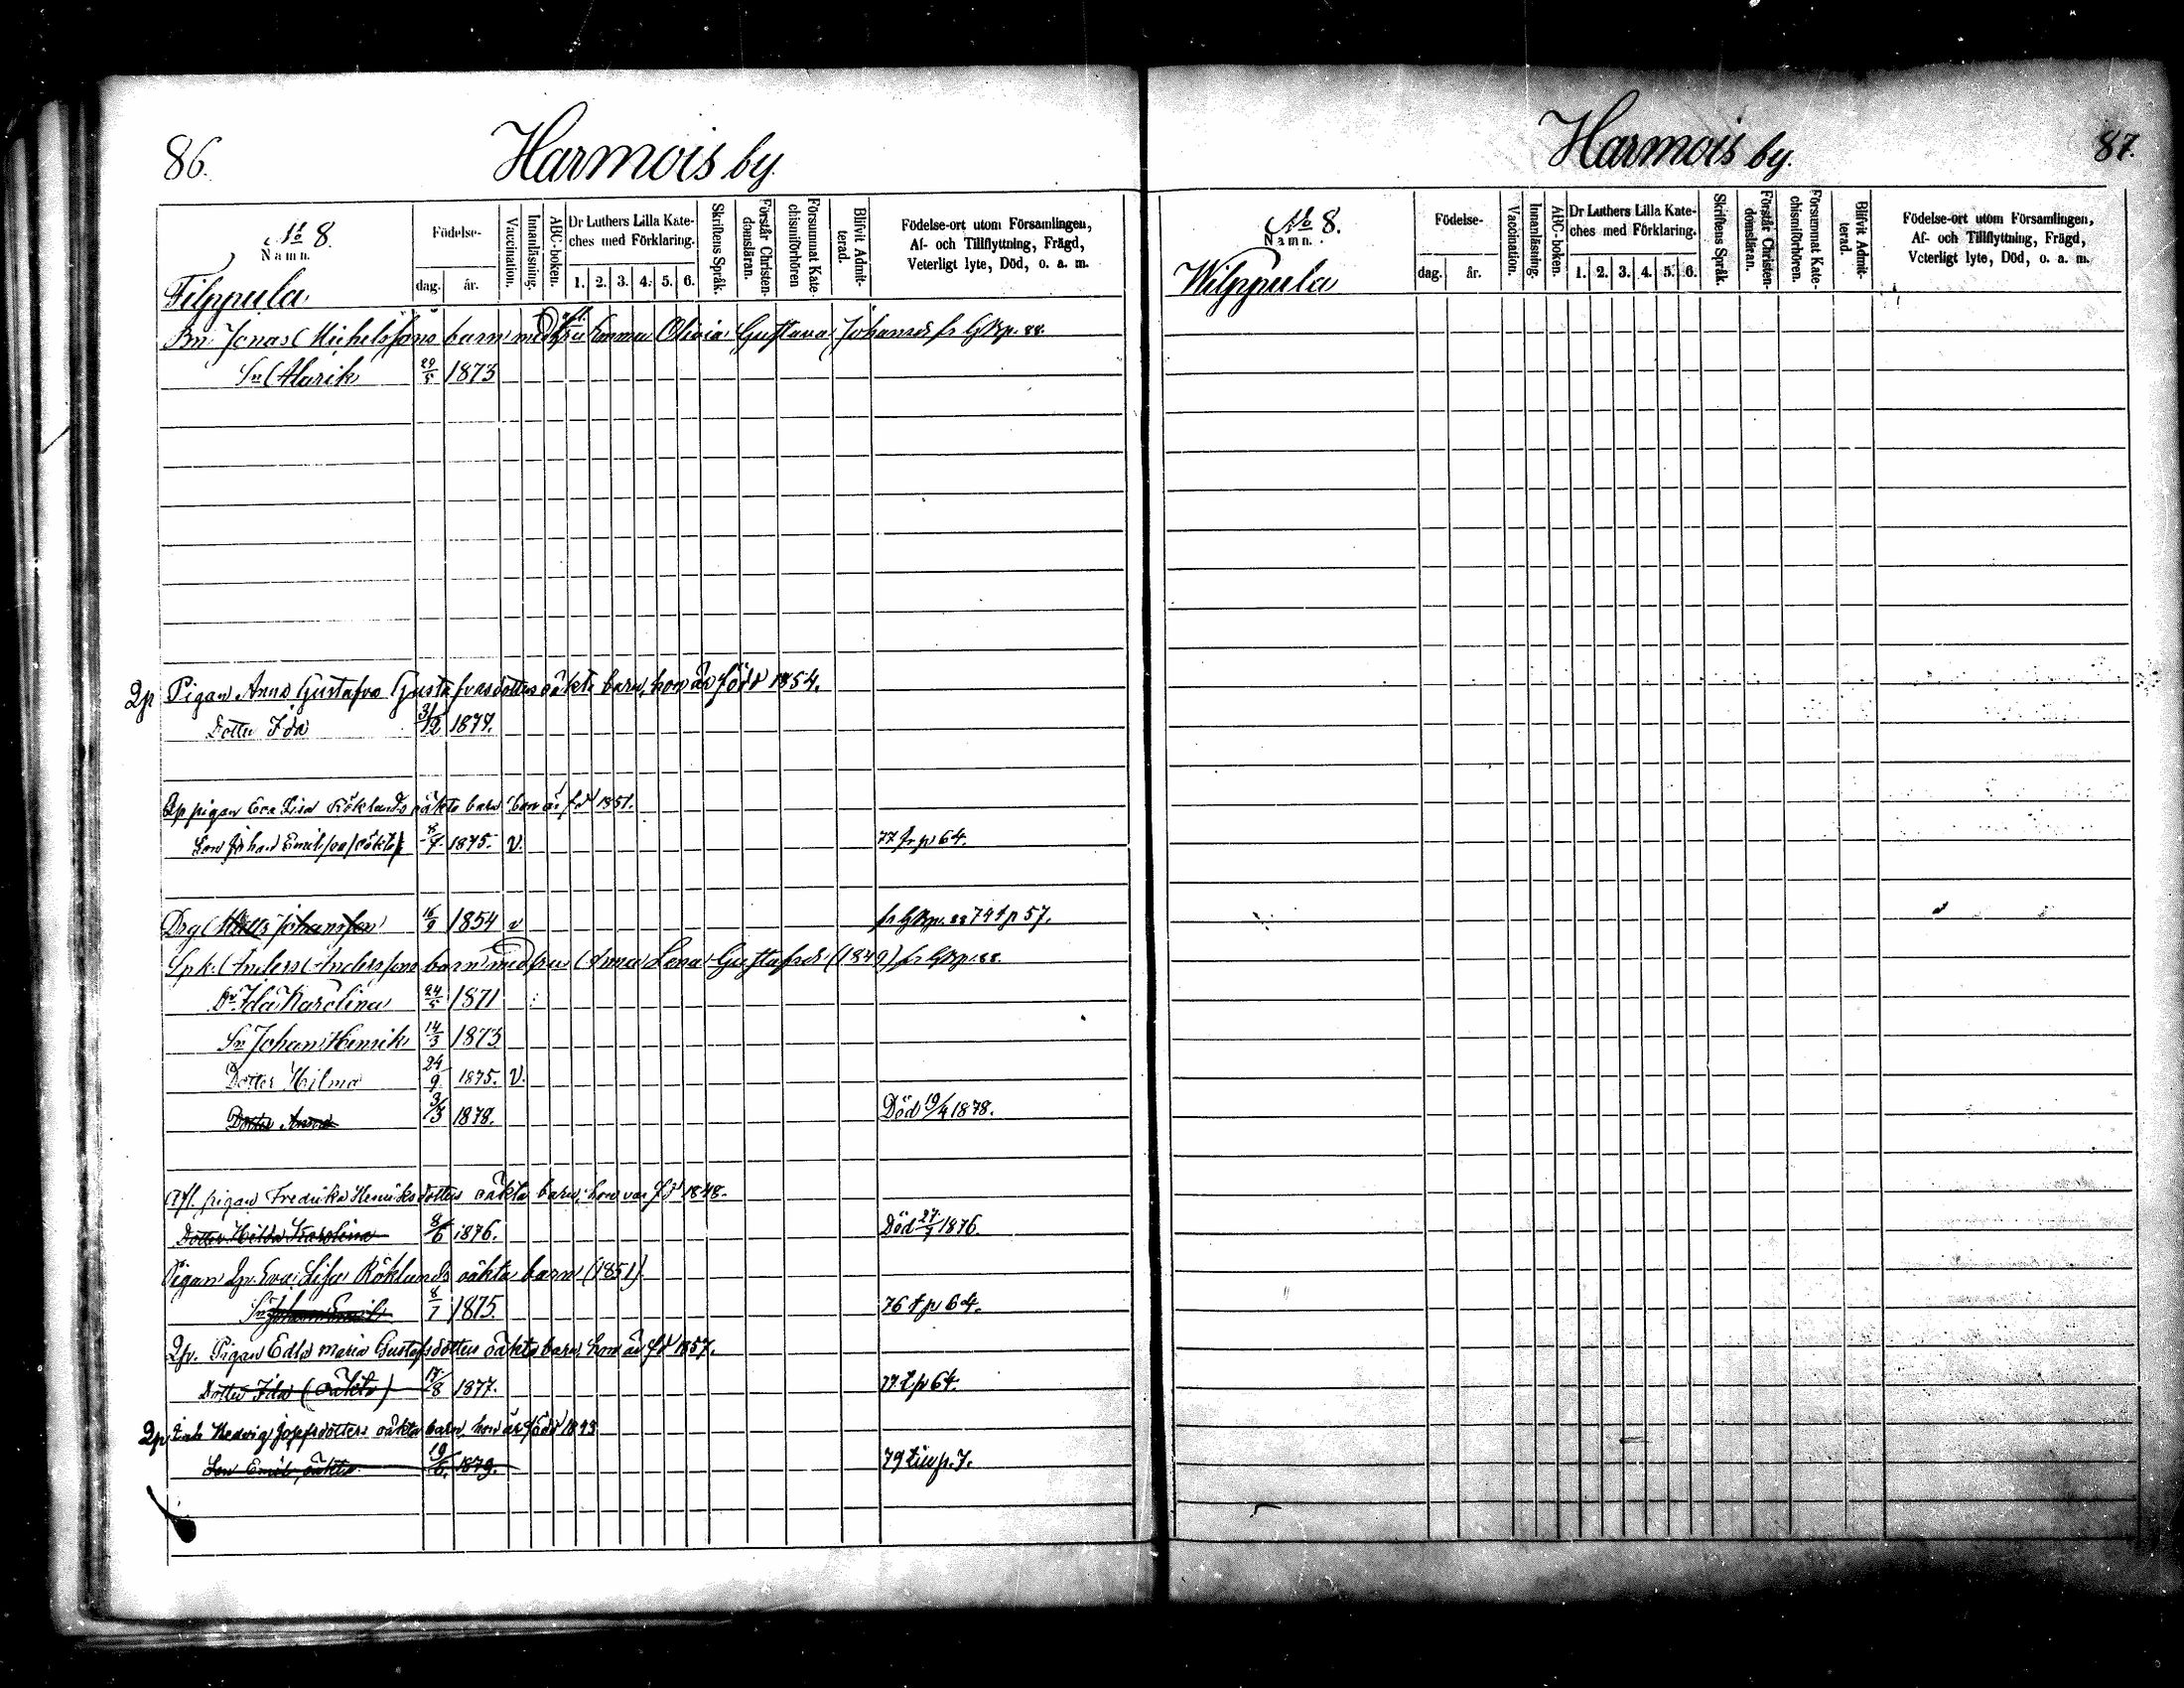 86.
Harmois by.
No 8.
Namn.
Födelse-
dag. år.
Vaccination.
Innanläsning.
ABC-boken.
Dr Luthers Lilla Kate-
ches med Förklaring.
1. 2. 3. 4. 5. 6.
Skriftens Språk.
Förstår Christen-
domsläran.
Försummat Kate-
chismiförhören
Blifvit Admit-
terad.
Födelse-ort utom Församlingen,
Af- och Tillflyttning, Frägd,
Veterligt lyte, Död, o. a. m.
Filppula
Bn Jonas Michelssons barn med afl. hu Emma Olivia Gustava Johansdr fr GBp. 88.
Sn Alarik 29/5 1873
Qp Pigan Anna Gustafva Gustafvasdotters oäkta barn, hon är född 1854.
Dotter Ida 3/12 1877.
Qp pigan Eva Lisa Röklunds oäkta barn: hon är fd 1851.
Son Johan Emil (oäkta) 8/7 1875. v. 77 fr p 64.
Drg Matts Johansson 16/9 1854 v fr GBp. 88 74 t p 57.
Spk. Anders Anderssons barn med hu Anna Lena Gustafsdr (1849) fr GBp. 88.
Dr Ida Karolina 24/5 1871
Sn Johan Henrik 14/3 1873
Dotter Hilma 24/9 1875. v.
Dotter Anna 3/3 1878. Död 19/4 1878.
Afl. pigan Fredrika Henriksdotters oäkta barn; hon var fd 1848.
Dotter Hilda Karolina 8/6 1876. Död 27/7 1876.
Pigan Qp. Eva Lisa Röklunds oäkta barn (1851)
Sn Johan Emil 8/7 1875. 76 t p 64.
Qp. Pigan Edla Maria Gustafsdotters oäkta barn, hon är fd 1857.
Dotter Ida (oäkta) 17/8 1877. 77 t p 64.
Qp Hedvig Josefsdotters oäkta barn, hon är född 1843
Son Emil, oäkta 19/6. 1879. 79 till p. 7.
Harmois by.
87.
No 8.
Namn.
Födelse-
dag. år.
Vaccination.
Innanläsning.
ABC-boken.
Dr Luthers Lilla Kate-
ches med Förklaring.
1. 2. 3. 4. 5. 6.
Skriftens Språk.
Förstår Christen-
domsläran.
Försummat Kate-
chismiförhören.
Blifvit Admit-
terad.
Födelse-ort utom Församlingen,
Af- och Tillflyttning, Frägd,
Veterligt lyte, Död, o. a. m.
Wilppula